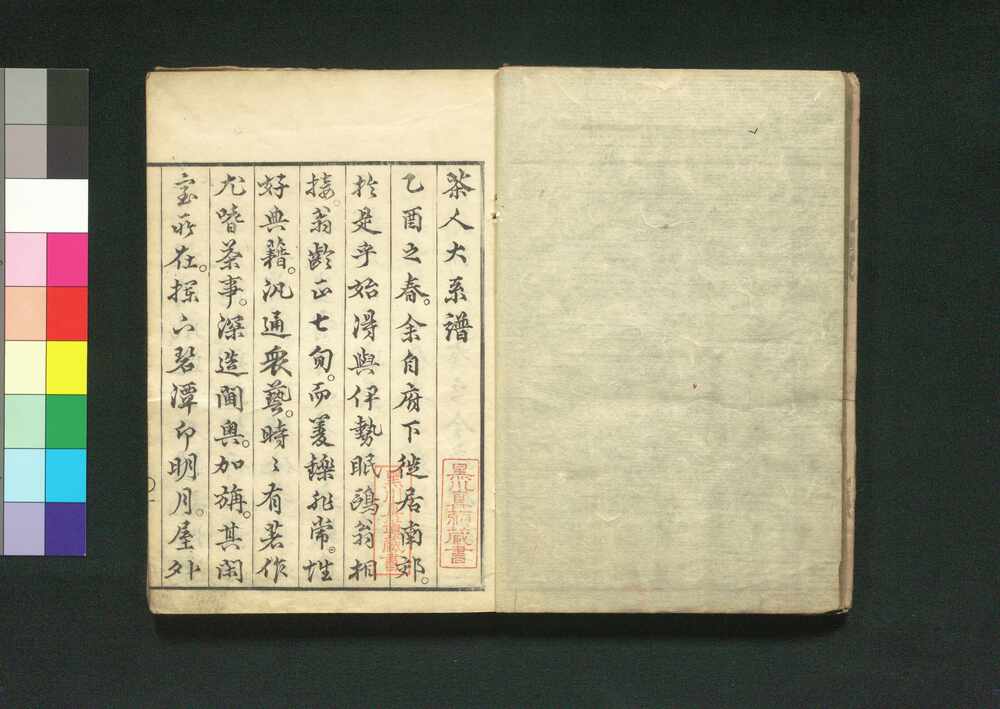 茶人大系譜
乙酉之春。余自府下徙居南郊。
於是乎始得與伊勢眠鷗翁相
接。翁齡正七旬。而矍鑠非常。性
好典籍。汎通衆藝。時〻有著作
尤嗜茶事。深造閫奥。加旃。其閑
室所在。探六碧潭印明月。屋外
黒川真頼蔵書
黒川真道蔵書